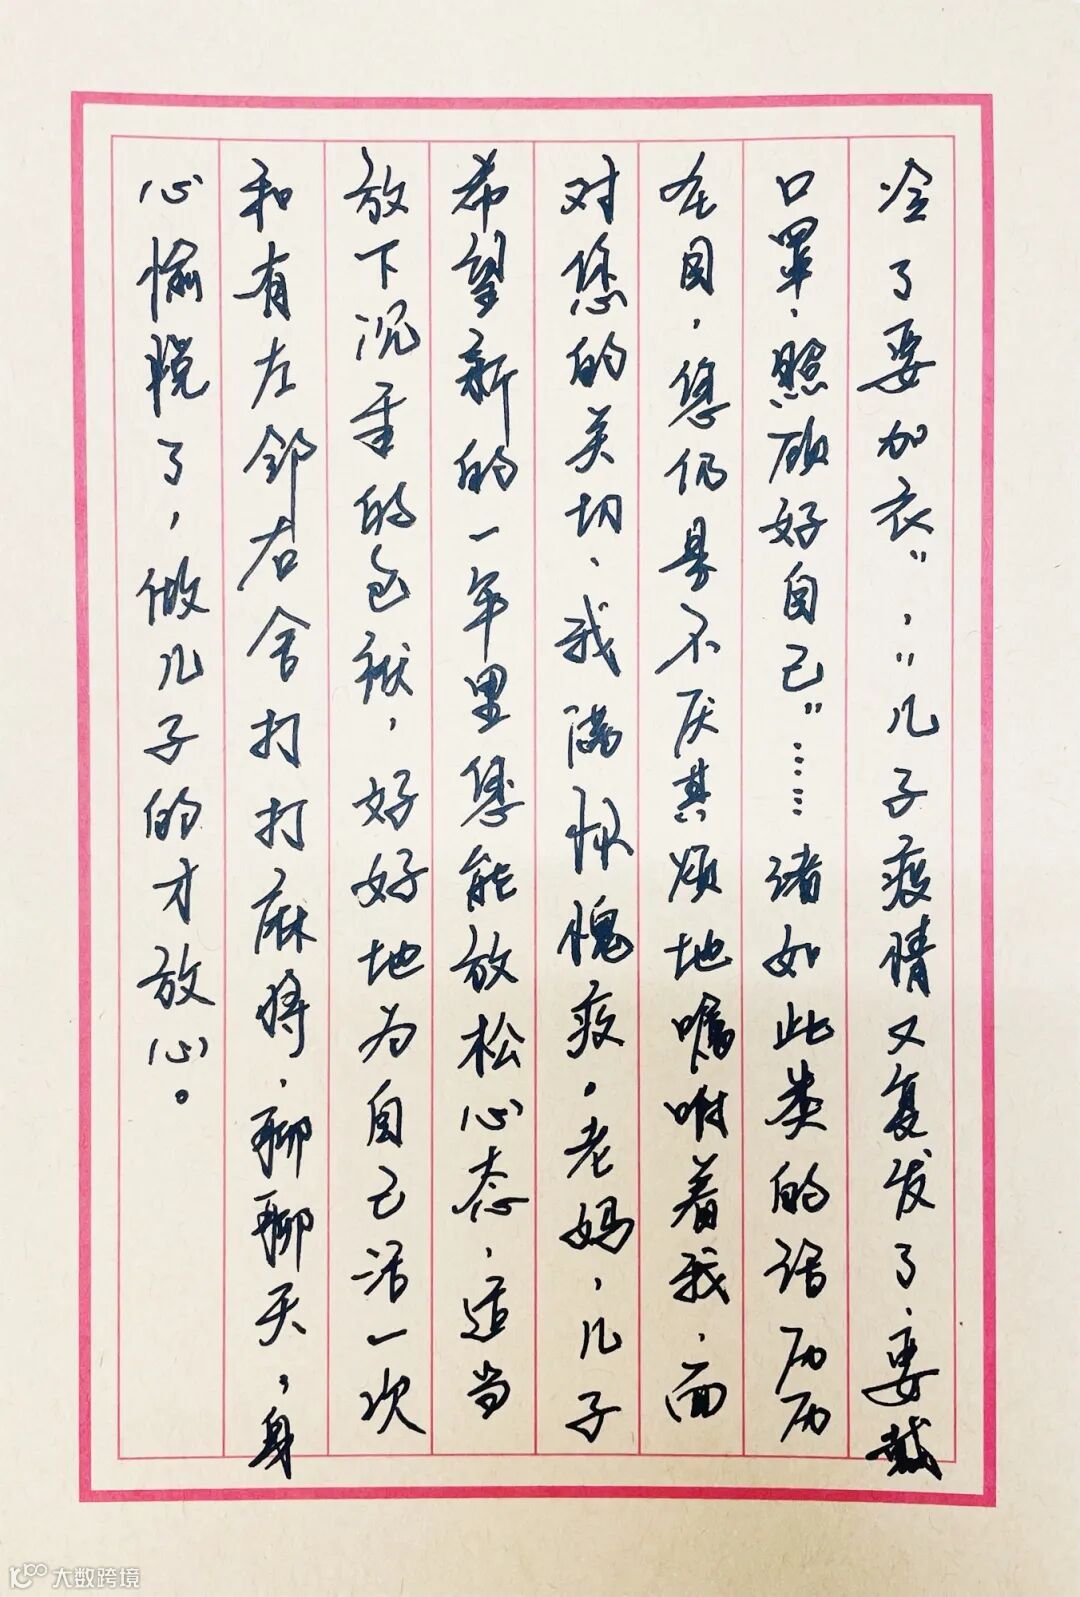 冷了要加衣”，“儿子疫情又复发了，要戴
口罩，照顾好自己”……诸如此类的话历历
在目，您仍是不厌其烦地嘱咐着我，面
对您的关切，我满怀愧疚。老妈，儿子
希望新的一年里您能放松心态，适当
放下沉重的包袱，好好地为自己活一次
和左邻右舍打打麻将，聊聊天，身
心愉悦了，做儿子的才放心。
大数跨境